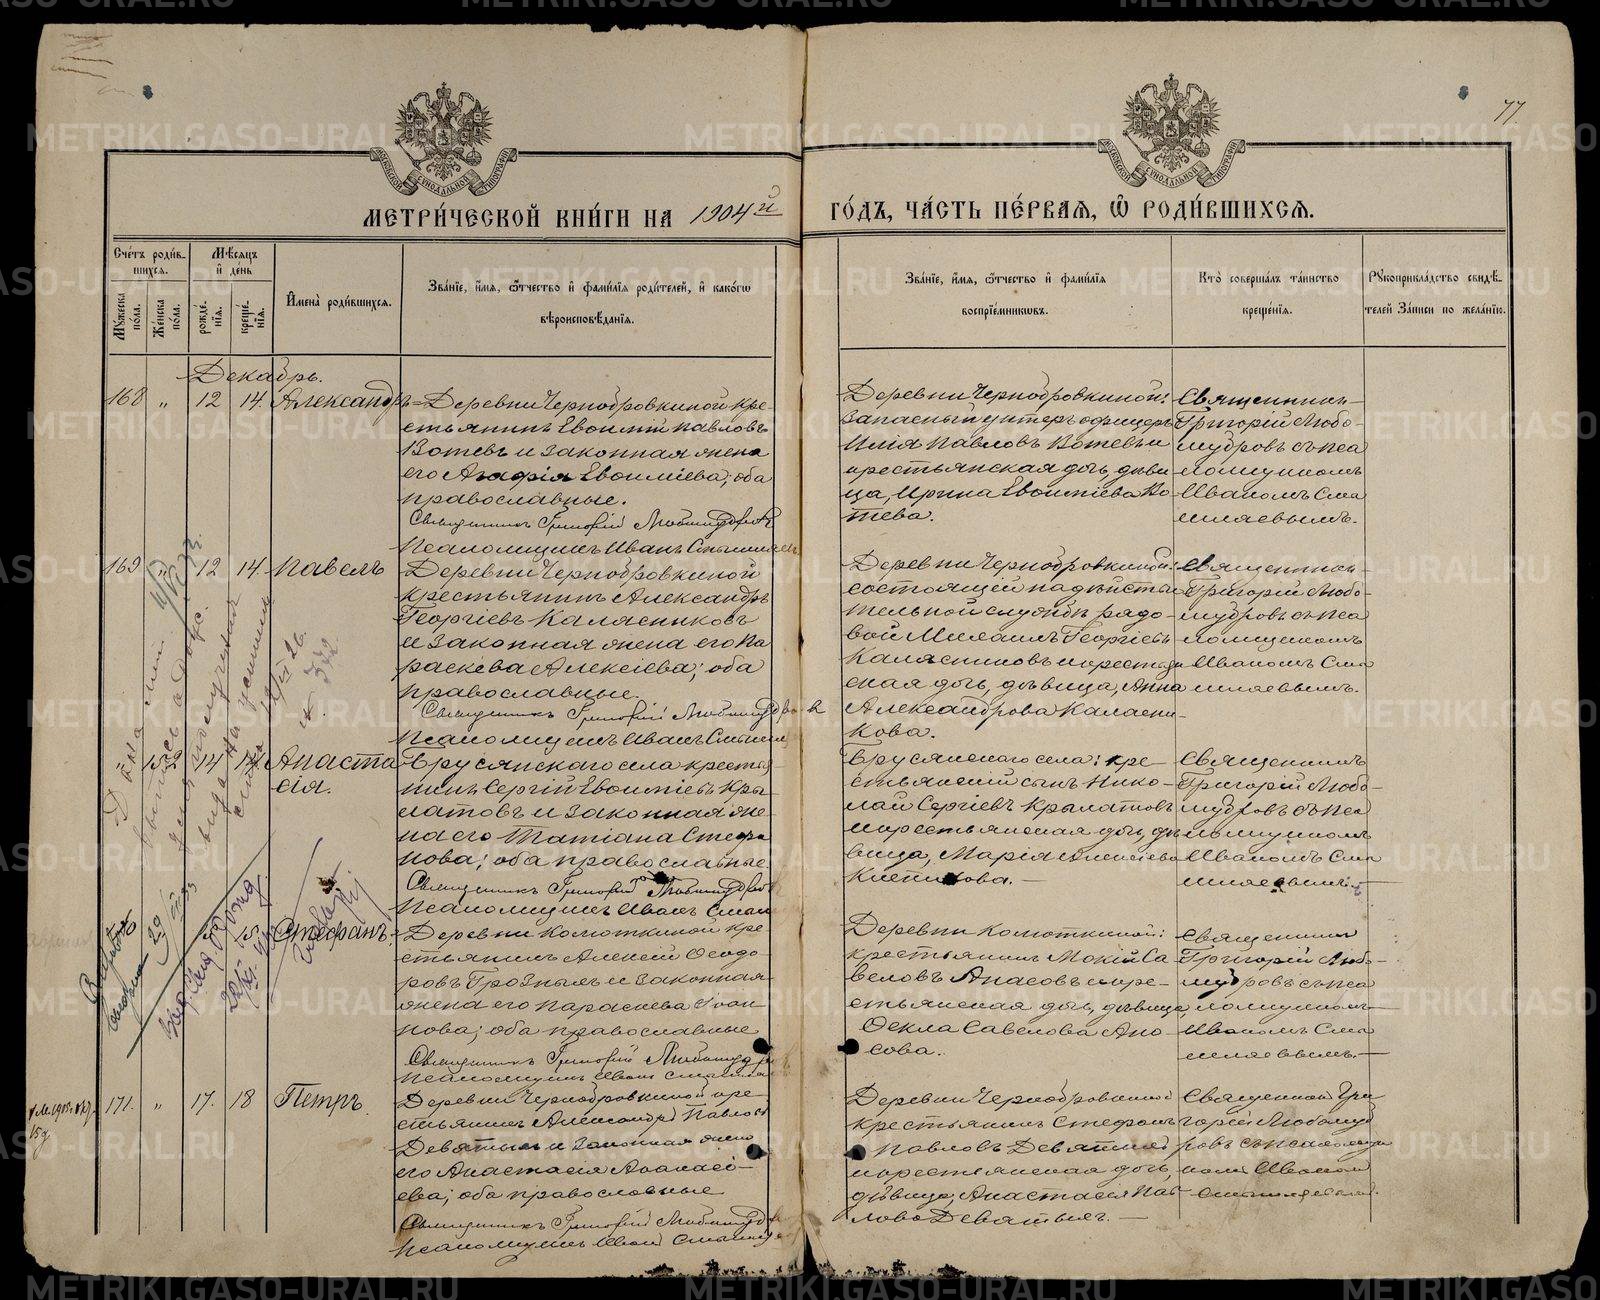 77
МЕТРИ́ЧЕСКОЙ КНИ́ГИ НА 1904й ГО́ДЪ, ЧА́СТЬ ПЕ́РВАЯ, Ѡ҆ РОДИ́ВШИХСЯ.
Сче́тъ роди́в-
шихся.
Мꙋжеска по́ла.
Же́нска по́ла.
Мѣ́сяцъ
и҆ де́нь
рожде́-
нїя.
креще́-
нїя.
И҆мена̀ роди́вшихся.
Зва́нїе, и҆́мя, ѻ҆́тчество и҆ фами́лїя роди́телей, и҆ како́гѡ
вѣроисповѣ́данїя.
Зва́нїе, и҆́мя, ѻ҆́тчество и҆ фами́лїя
воспрїе́мникѡвъ.
Кто̀ соверша́лъ та́инство
креще́нїя.
Рꙋкоприкла́дство свидѣ́-
телей за́писи по жела́нїю.
Декабрь.
168 " 12 14. Александръ
Деревни Чернобровкиной кре-
стьянинъ Евѳимій Павловъ
Вотевъ и законная жена
его Агафія Евѳиміева; оба
православные.
Священникъ Григорій Любомудровъ
Псаломщикъ Иванъ Смышляевъ
Деревни Чернобровкиной:
запасный унтеръ офицеръ
Илія Павловъ Вотевъ и
крестьянская дочь, дѣви
ца, Ирина Евѳиміева Во-
тева.
Священникъ
Григорій Любо-
мудровъ съ пса
ломщикомъ
Иваномъ Смы
шляевымъ.
169 " 12 14 Павелъ
Деревни Чернобровкиной
крестьянинъ Александръ
Георгіевъ Калясниковъ
и законная жена его Па
раскева Алексіева; оба
православные.
Священникъ Григорій Любомудровъ
Псаломщикъ Иванъ Смышля
Деревни Чернобровкиной:
состоящій на дѣйстви
тельной службѣ рядо-
вой Михаилъ Георгіевъ
Калясниковъ и крестьян
ская дочь, дѣвица, Анна
Александрова Калясни-
кова.
Священникъ
Григорій Любо-
мудровъ съ пса
ломщикомъ
Иваномъ Смы
шляевымъ.
" 152 14 14 Анаста
сія.
Брусянскаго села крестья-
нинъ Сергій Евѳиміевъ Кры-
латовъ и законная же-
на его Татіана Стефа
нова; оба православные
Священникъ Григорій Любомудровъ
Псаломщикъ Иванъ Смыш
Брусянскаго села: кре-
стьянскій сынъ Нико-
лай Сергіевъ Крылатовъ
и крестьянская дочь, дѣ
вица, Марія Алексіева
Священникъ
Григорій Любо-
мудровъ съ пса
ломщикомъ
Иваномъ Смы
шляевымъ.
15 Стефанъ.
Деревни Колюткиной кре
стьянинъ Алексій Ѳеодо-
ровъ Грозныхъ и законная
жена его Параскева Іоан-
нова; оба православные
Священникъ Григорій Любомудр
Псаломщикъ Иванъ Смышля
Деревни Колюткиной:
крестьянинъ Мокій Са
веловъ Апасовъ и кре-
стьянская дочь, дѣвица
Ѳекла Савелова Апо
сова.
Священникъ
Григорій Любо-
мудровъ съ пса
ломщикомъ
Иваномъ Смы
шляевымъ.
171. " 17. 18 Петръ.
Деревни Чернобровкиной кре-
стьянинъ Александръ Павловъ
Девятыхъ и законная жена
его Анастасія Аѳанасі-
ева; оба православные
Священникъ Григорій Любомудр
Псаломщикъ Иванъ Смышл
Деревни Чернобровкиной
крестьянинъ Стефанъ
Павловъ Девятыхъ
и крестьянская дочь,
дѣвица, Анастасія Пав-
лова Девятыхъ.
Священникъ Гри
горій Любомуд
ровъ съ псаломщи
комъ Иваномъ
Смышляевымъ.
METRIKI.GASO-URAL.RU